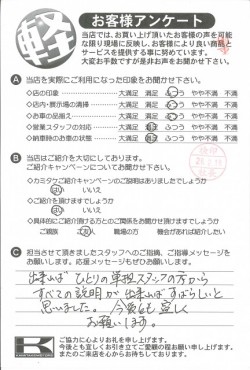 軽
お客様アンケート
当店では、お買い上げ頂いたお客様の声を可能
な限り現場に反映し、お客様により良い商品と
サービスを提供する事に努めています。
大変お手数ですが是非お声をお聞かせ下さい。
A 当店を実際にご利用になった印象をお聞かせ下さい。
◇店の印象 大満足 満足 ふつう やや不満 不満
◇店内・展示場の清掃 大満足 満足 ふつう やや不満 不満
◇お車の品揃え 大満足 満足 ふつう やや不満 不満
◇営業スタッフの対応 大満足 満足 ふつう やや不満 不満
◇納車時のお車の状態 大満足 満足 ふつう やや不満 不満
B 当店はご紹介を大切にしております。
ご紹介キャンペーンについてお聞かせ下さい。
◇カミタケご紹介キャンペーンの説明はありましたでしょうか
はい いいえ
◇ご紹介を頂けますでしょうか
はい いいえ
◇具体的にご紹介頂ける方とのご関係をお聞かせ頂けますか
ご親族 ご友人 職場の方 機会があれば紹介したい
C 担当させて頂きましたスタッフへのご指摘、ご指導メッセージを
お願いします。応援メッセージもぜひお願いします。
出来ればひとりの専担スタッフの方から
すべての説明が出来ればすばらしいと
思いました。今後も宜しく
お願いします。
K
ご協力に心よりお礼を申し上げます。
今後とも宜しくお引き立てご愛顧の程お願い申し上げます。
またのご来店を心からお待ちしております。